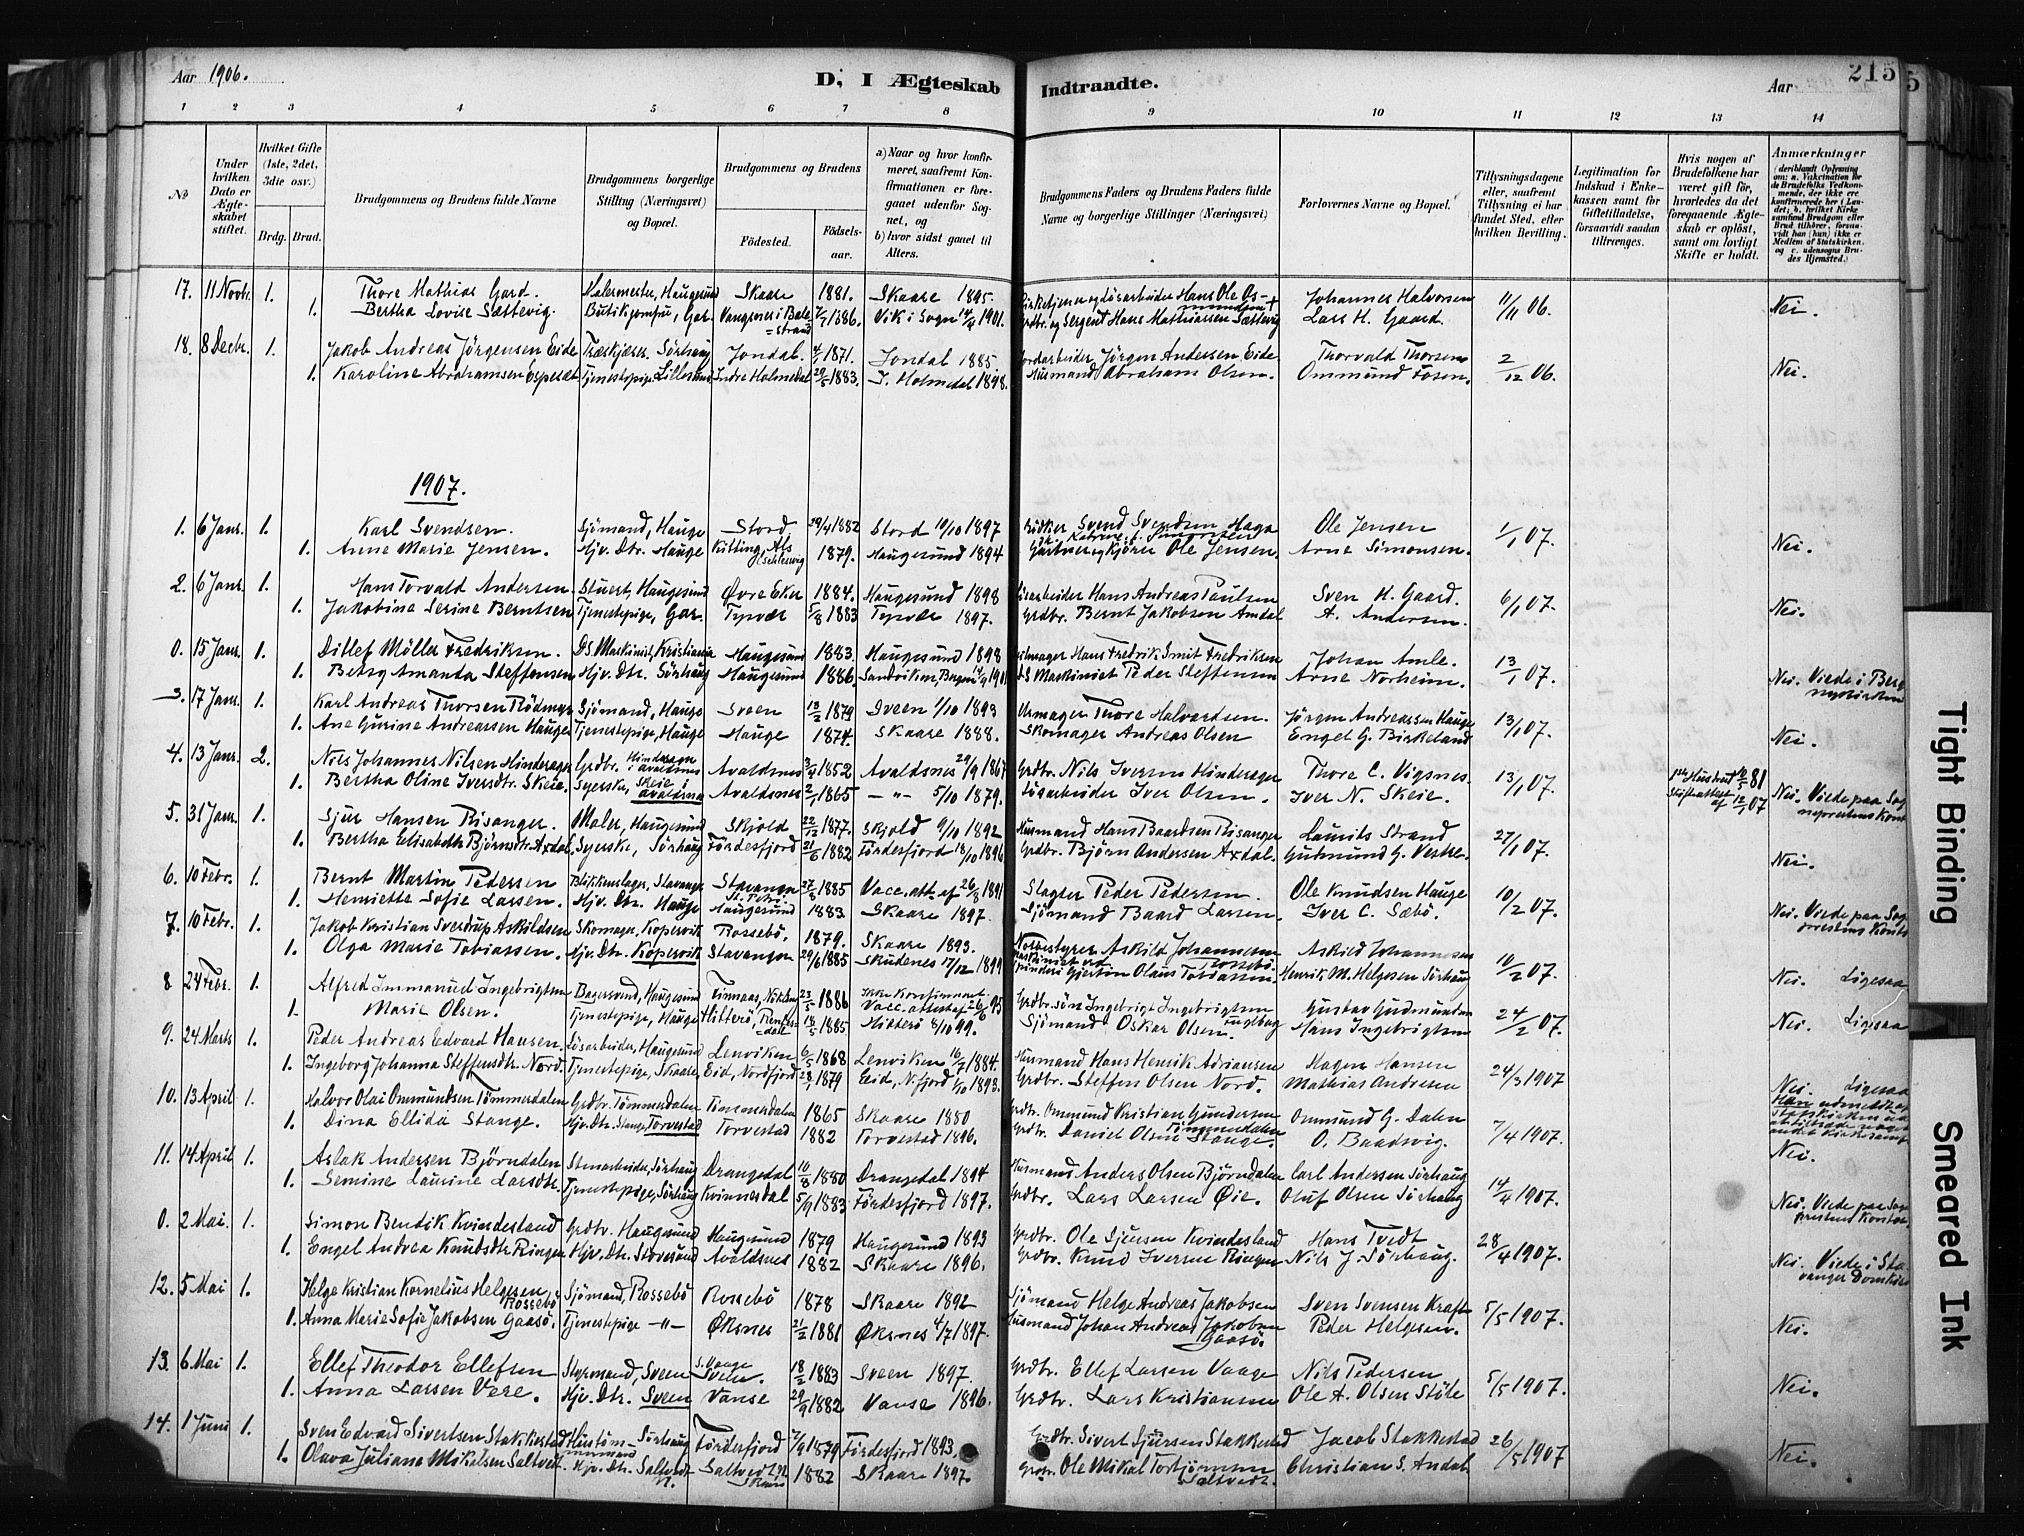 Aar 1906.
D, I Ægteskab
Indtraadte.
Aar
215
1 2 3 4 5 6 7 8
9 10 11 12 13 14
№
Under hvilken Dato er Ægteskabet stiftet.
Hvilket Gifte (1ste, 2det, 3die osv.)
Brdg. Brud.
Brudgommens og Brudens fulde Navne
Brudgommens borgerlige Stilling (Næringsvei) og Bopæl.
Brudgommens og Brudens
Fødested. Fødselsaar.
a) Naar og hvor konfirmeret, saafremt Konfirmationen er foregaaet udenfor Sognet, og
b) hvor sidst gaaet til Alters.
Brudgommens Faders og Brudens Faders fulde Navne og borgerlige Stillinger (Næringsvei)
Forlovernes Navne og Bopæl.
Tillysningsdagene eller, saafremt Tillysning ei har fundet Sted, efter hvilken Bevilling.
Legitimation for Indskud i Enkekassen samt for Giftetilladelse, forsaavidt saadan tiltrænges.
Hvis nogen af Brudefolkene har været gift før, hvorledes da det foregaaende Ægteskab er opløst, samt om lovligt Skifte er holdt.
Anmærkninger
17. 11 Novbr. 1. Thore Mathias Gard. Malermester, Haugesund Skaare 1881. Skaare 1895. Kirketjener og Løsarbeider Hans Ole Osmundsen Johannes Halvorsen 11/11 06. Nei.
1. Bertha Lovise Sættevig. Butikjomfru, Gar. Vangsnes i Balestrand 7/7 1886. Vik i Sogn 14/4 1901. Grdbr. og Sergent Hans Mathiassen Sættevig Lars H. Gaard.
18. 8 Decbr. 1. Jakob Andreas Jörgensen Eide Træskjærer. Sörhaug Jondal. 4/1 1871. Jondal 1885. Jordarbeider Jörgen Andersen Eide Thorvald Thorsen 2/12 06. Nei.
1. Karoline Abrahamsen Espesæt Tjenestepige, Lillesund Indre Holmedal 29/5 1883. I. Holmedal 1898. Husmand Abraham Olsen. Ommund Fosen.
1907.
1. 6 Janr. 1. Karl Svendsen. Sjömand, Hauge Stord 29/4 1882 Stord 10/10 1897 Bödker Svend Svendsen Haga Ole Jensen 1/1 07.
1. Anne Marie Jensen. Hjv. Dtr. Hauge Kitting, Als (Schleswig 1879. Haugesund 1894 Gartner og Kjörer Ole Jensen. Arne Simonsen. Nei.
2. 6 Janr. 1. Hans Torvald Andersen Stuert, Haugesund Øvre Eker 1884. Haugesund 1898 Løsarbeider Hans Andreas Paulsen Sven H. Gaard. 6/1 07.
1. Jakobine Serine Berntsen Tjenestepige, Gar. Tysvær 5/8 1883 Tysvær 1897. Grdbr. Bernt Jakobsen Amdal A. Andersen. Nei.
0. 15 Janr. 1. Ditlef Möller Fredriksen. DS. Maskinist, Kristiania Haugesund 1883. Haugesund 1898 Seilmager Hans Fredrik Smit Fredriksen Johan Amle. 13/1 07.
1. Betsy Amanda Steffensen Hjv. Dtr. Sörhaug Haugesund 1886. Sandviken, Bergen 1901 DS Maskinist Peder Steffensen Arne Norheim. Nei. Viede i Berg
3. 17 Janr. 1. Karl Andreas Thorsen Rödinge Sjömand, Hauge Sveen 13/2 1879 Sveen 1/10 1893 Urmager Thore Halvordsen. Jörgen Andreassen Hauge 13/1 07.
1. Ane Gurine Andreassen Hauge Tjenestepige, Hauge Hauge 1874. Skaare 1888. Skomager Andreas Olsen Engel G. Birkeland Nei.
4. 13 Janr. 2. Nils Johannes Nilsen Hinderager Grdbr. Hinderager i Avaldsnes Avaldsnes 3/4 1852 Avaldsnes 29/9 1867 Grdbr. Nils Iversen Hinderager Thore C. Vigsnes. 13/1 07. 1ste Hustru † 10/5 81 Skifteattest af 12/1 07
1. Bertha Oline Iversdtr. Skeie. Syerske, Skeie Avaldsnes Avaldsnes 2/1 1865 –"– 5/10 1879. Løsarbeider Iver Olsen. Iver N. Skeie. Nei. Viede paa Sog
5. 31 Janr. 1. Sjur Hansen Risanger. Maler, Haugesund Skjold 22/12 1877. Skjold 9/10 1892 Husmand Hans Baardsen Risanger Laurits Strand 27/1 07.
1. Bertha Elisabeth Björnsdtr. Axdal. Syerske, Sörhaug Förдesfjord 21/6 1882 Fördesfjord 18/10 1896 Grdbr. Björn Andersen Axdal. Gudmund G. Vestre. Nei.
6. 10 Febr. 1. Bernt Martin Pedersen Blikkenslager, Stavanger Stavanger St. Petri 27/8 1885 Vacc. att. af 26/8 1891 Slagter Peder Pedersen Ole Knudsen Hauge 10/2 07.
1. Henriette Sofie Larsen. Hjv. Dtr. Hauge Haugesund 1883 Skaare 1897. Sjömand Baard Larsen. Iver C. Sæbö. Nei. Viede paa Sog
7. 10 Febr. 1. Jakob Kristian Sverdrup Askildsen Skomager, Kopervik Rossebö. 1879. Skaare 1893. Askild Johannesen Rossebö. Askild Johannesen 10/2 07.
1. Olga Marie Tobiassen. Hjv. Dtr. Kopervik Stavanger 29/6 1885 Skudenes 17/12 1899 Olaus Tobiassen. Henrik M. Helgesen Sörhaug Nei. Ligesaa
8 24 Febr. 1. Alfred Immanuel Ingebrigtsen Bagersvend, Haugesund Finnaas, 23/5 1886 Ikke Konfirmeret Vacc. attest af 26/6 93 Grdbr. sön Ingebrigt Ingebrigtsen Gustav Gudmundsen 24/2 07.
1. Marie Olsen. Tjenestepige, Hauge Hitterö, 18/5 1885 Hitterö 8/10 99. Sjömand Oskar Olsen Hans Ingebrigtsen Nei. Ligesaa
9. 24 Marts 1. Peder Andreas Edvard Hansen. Løsarbeider, Haugesund Lenviken 6/5 1868 Lenviken 16/7 1884. Husmand Hans Henrik Adriansen Hagen Hansen 24/3 1907
1. Ingeborg Johanna Steffensdtr. Nord. Tjenestepige, Skaare, Eid, Nordfjord 28/1 1879 Eid, N.fjord 1/10 1893. Grdbr. Steffen Olsen Nord. Mathias Andresen Nei. Ligesaa
10. 13 April 1. Halvor Olai Ommundsen Tömmerdalen Grdbr. Tömmerdalen Tömmerdalen 1865 Skaare 1880 Grdbr. Ommund Kristian Gundersen Tömmerdalen Ommund G. Dalen 7/4 1907.
1. Dina Ellida Stange. Hjv. Dtr. Stange, Torvestad Torvestad 1882 Torvestad 1896. Grdbr. Daniel Olsen Stange. O. Baadsvig.
11. 14 April 1. Aslak Andersen Björndalen Stenarbeider, Sörhaug Drangedal 16/8 1880 Drangedal 1894 Husmand Anders Olsen Björndalen Carl Andersen Sörhaug 14/4 1907. Nei.
1. Semine Laurine Larsdtr. Tjenestepige, Sörhaug Kvinnesdal 5/9 1883 Fördesfjord 1897. Grdbr. Lars Larsen Øie. Oluf Olsen Sörhaug Nei. Viede paa Sog
0. 2 Mai. 1. Simon Bendik Kvindesland Grdbr. Haugesund Haugesund 1879 Haugesund 1893 Grdbr. Ole Sjursen Kvindesland Hans Tvedt 28/4 1907.
1. Engel Andrea Knudsdtr. Ringen Hjv. Dtr. Storesund Avaldsnes 1882 Skaare 1896. Grdbr. Knud Iversen Ringen Nils J. Sörhaug. Nei. Viede i Stavanger Domkirke
12. 5 Mai 1. Helge Kristian Kornelius Helgesen Rossebö Sjömand, Rossebö Rossebö 1878 Skaare 1892 Sjömand Helge Andreas Jakobsen Sven Svensen Kraft 5/5 1907.
1. Anna Marie Sofie Jakobsen Gaasö. Tjenestepige –"– Øksnes 21/2 1881 Øksnes 4/7 1897. Husmand Johan Andreas Jakobsen Gaasö. Peder Helgesen. Nei.
13. 6 Mai 1. Ellef Theodor Ellefsen Styrmand, Sveen S. Vaage Sveen. 18/2 1883 Sveen 1897. Grdbr. Ellef Larsen Vaage Nils Pedersen 5/5 1907.
1. Anna Larsen Vere. Hjv. Dtr. Sveen Vanse 29/9 1882 Vanse 1896. Grdbr. Lars Kristiansen Ole A. Olsen Stöle Nei.
14. 1 Juni 1. Sven Edvard Sivertsen Stakkestad Hustömmermand Sörhaug Fördesfjord 7/9 1879 Fördesfjord 1893. Grdbr. Sivert Sjursen Stakkestad Jacob Stakkestad 26/5 1907
1. Olava Juliane Mikelsen Saltvedt. Hjv. Dtr. Saltvedt Saltvedt 1882 Skaare 1897. Grdbr. Ole Mikal Torbjörnsen Saltvedt. Christian S. Andal Nei.
Tight Binding
Smeared Ink